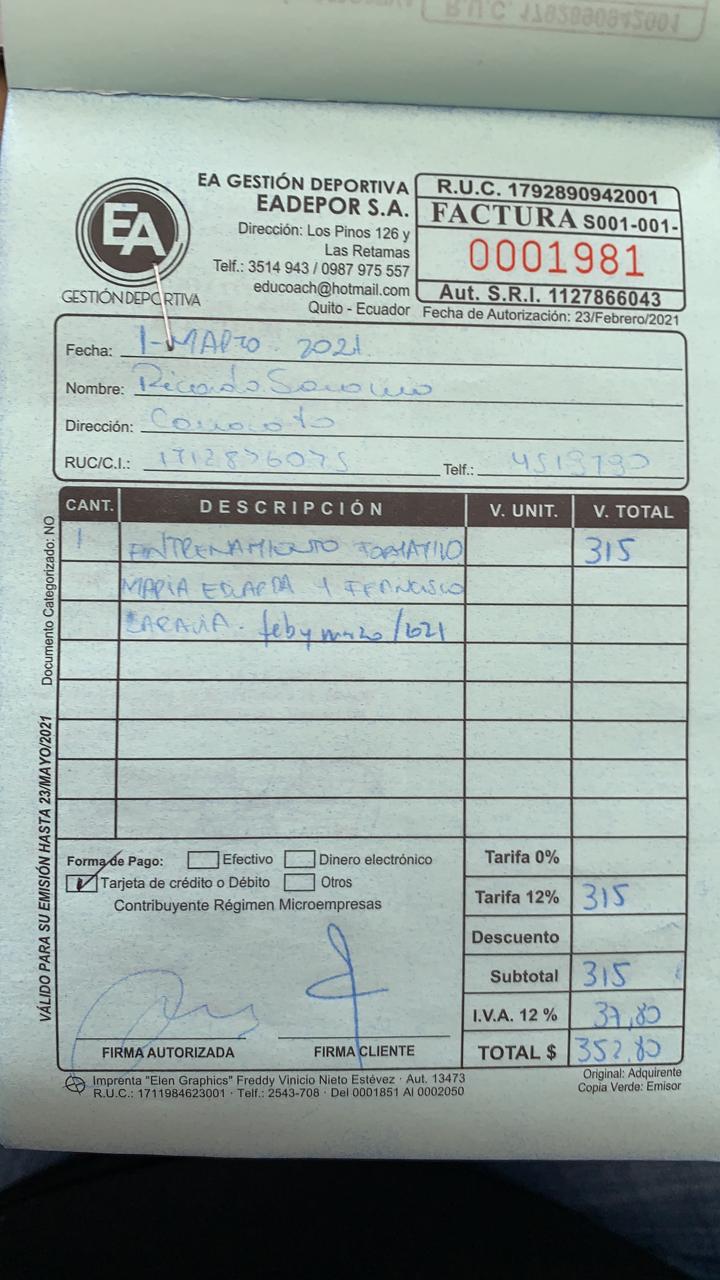 R.U.C. 1792890942001
EA GESTIÓN DEPORTIVA
EADEPOR S.A.
Dirección: Los Pinos 126 y
Las Retamas
Telf.: 3514 943 / 0987 975 557
educoach@hotmail.com
Quito - Ecuador
EA
GESTIÓN DEPORTIVA
R.U.C. 1792890942001
FACTURA S001-001-
0001981
Aut. S.R.I. 1127866043
Fecha de Autorización: 23/Febrero/2021
Fecha: 1-MARZO-2021
Nombre: Ricardo
Dirección:
RUC/C.I.: Telf.:
CANT. DESCRIPCIÓN V. UNIT. V. TOTAL
1 ENTRENAMIENTO FORMATIVO 315
MARIA EDUARDA Y FRANCISCO
feb y marzo/2021
Documento Categorizado: NO
VÁLIDO PARA SU EMISIÓN HASTA 23/MAYO/2021
Forma de Pago: Efectivo Dinero electrónico
Tarjeta de crédito o Débito Otros
Contribuyente Régimen Microempresas
Tarifa 0%
Tarifa 12% 315
Descuento
Subtotal 315
I.V.A. 12 % 37,80
TOTAL $ 352.80
FIRMA AUTORIZADA FIRMA CLIENTE
Imprenta "Elen Graphics" Freddy Vinicio Nieto Estévez · Aut. 13473
R.U.C.: 1711984623001 · Telf.: 2543-708 · Del 0001851 Al 0002050
Original: Adquirente
Copia Verde: Emisor